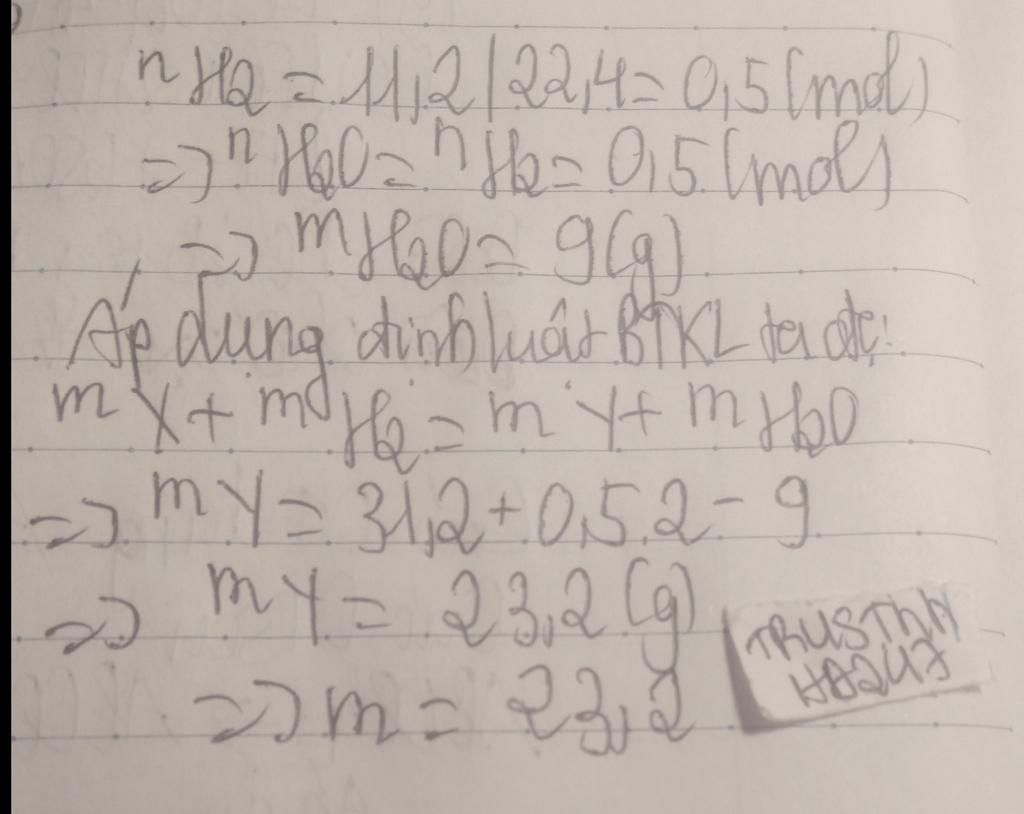 nH2 = 11,2/22,4 = 0,5 (mol)
=> nH2O = nH2 = 0,5 (mol)
=> mH2O = 9 (g)
Áp dụng định luật BTKL ta đc:
mX + mH2 = mY + mH2O
=> mY = 31,2 + 0,5.2 - 9
=> mY = 23,2 (g)
=> m = 23,2